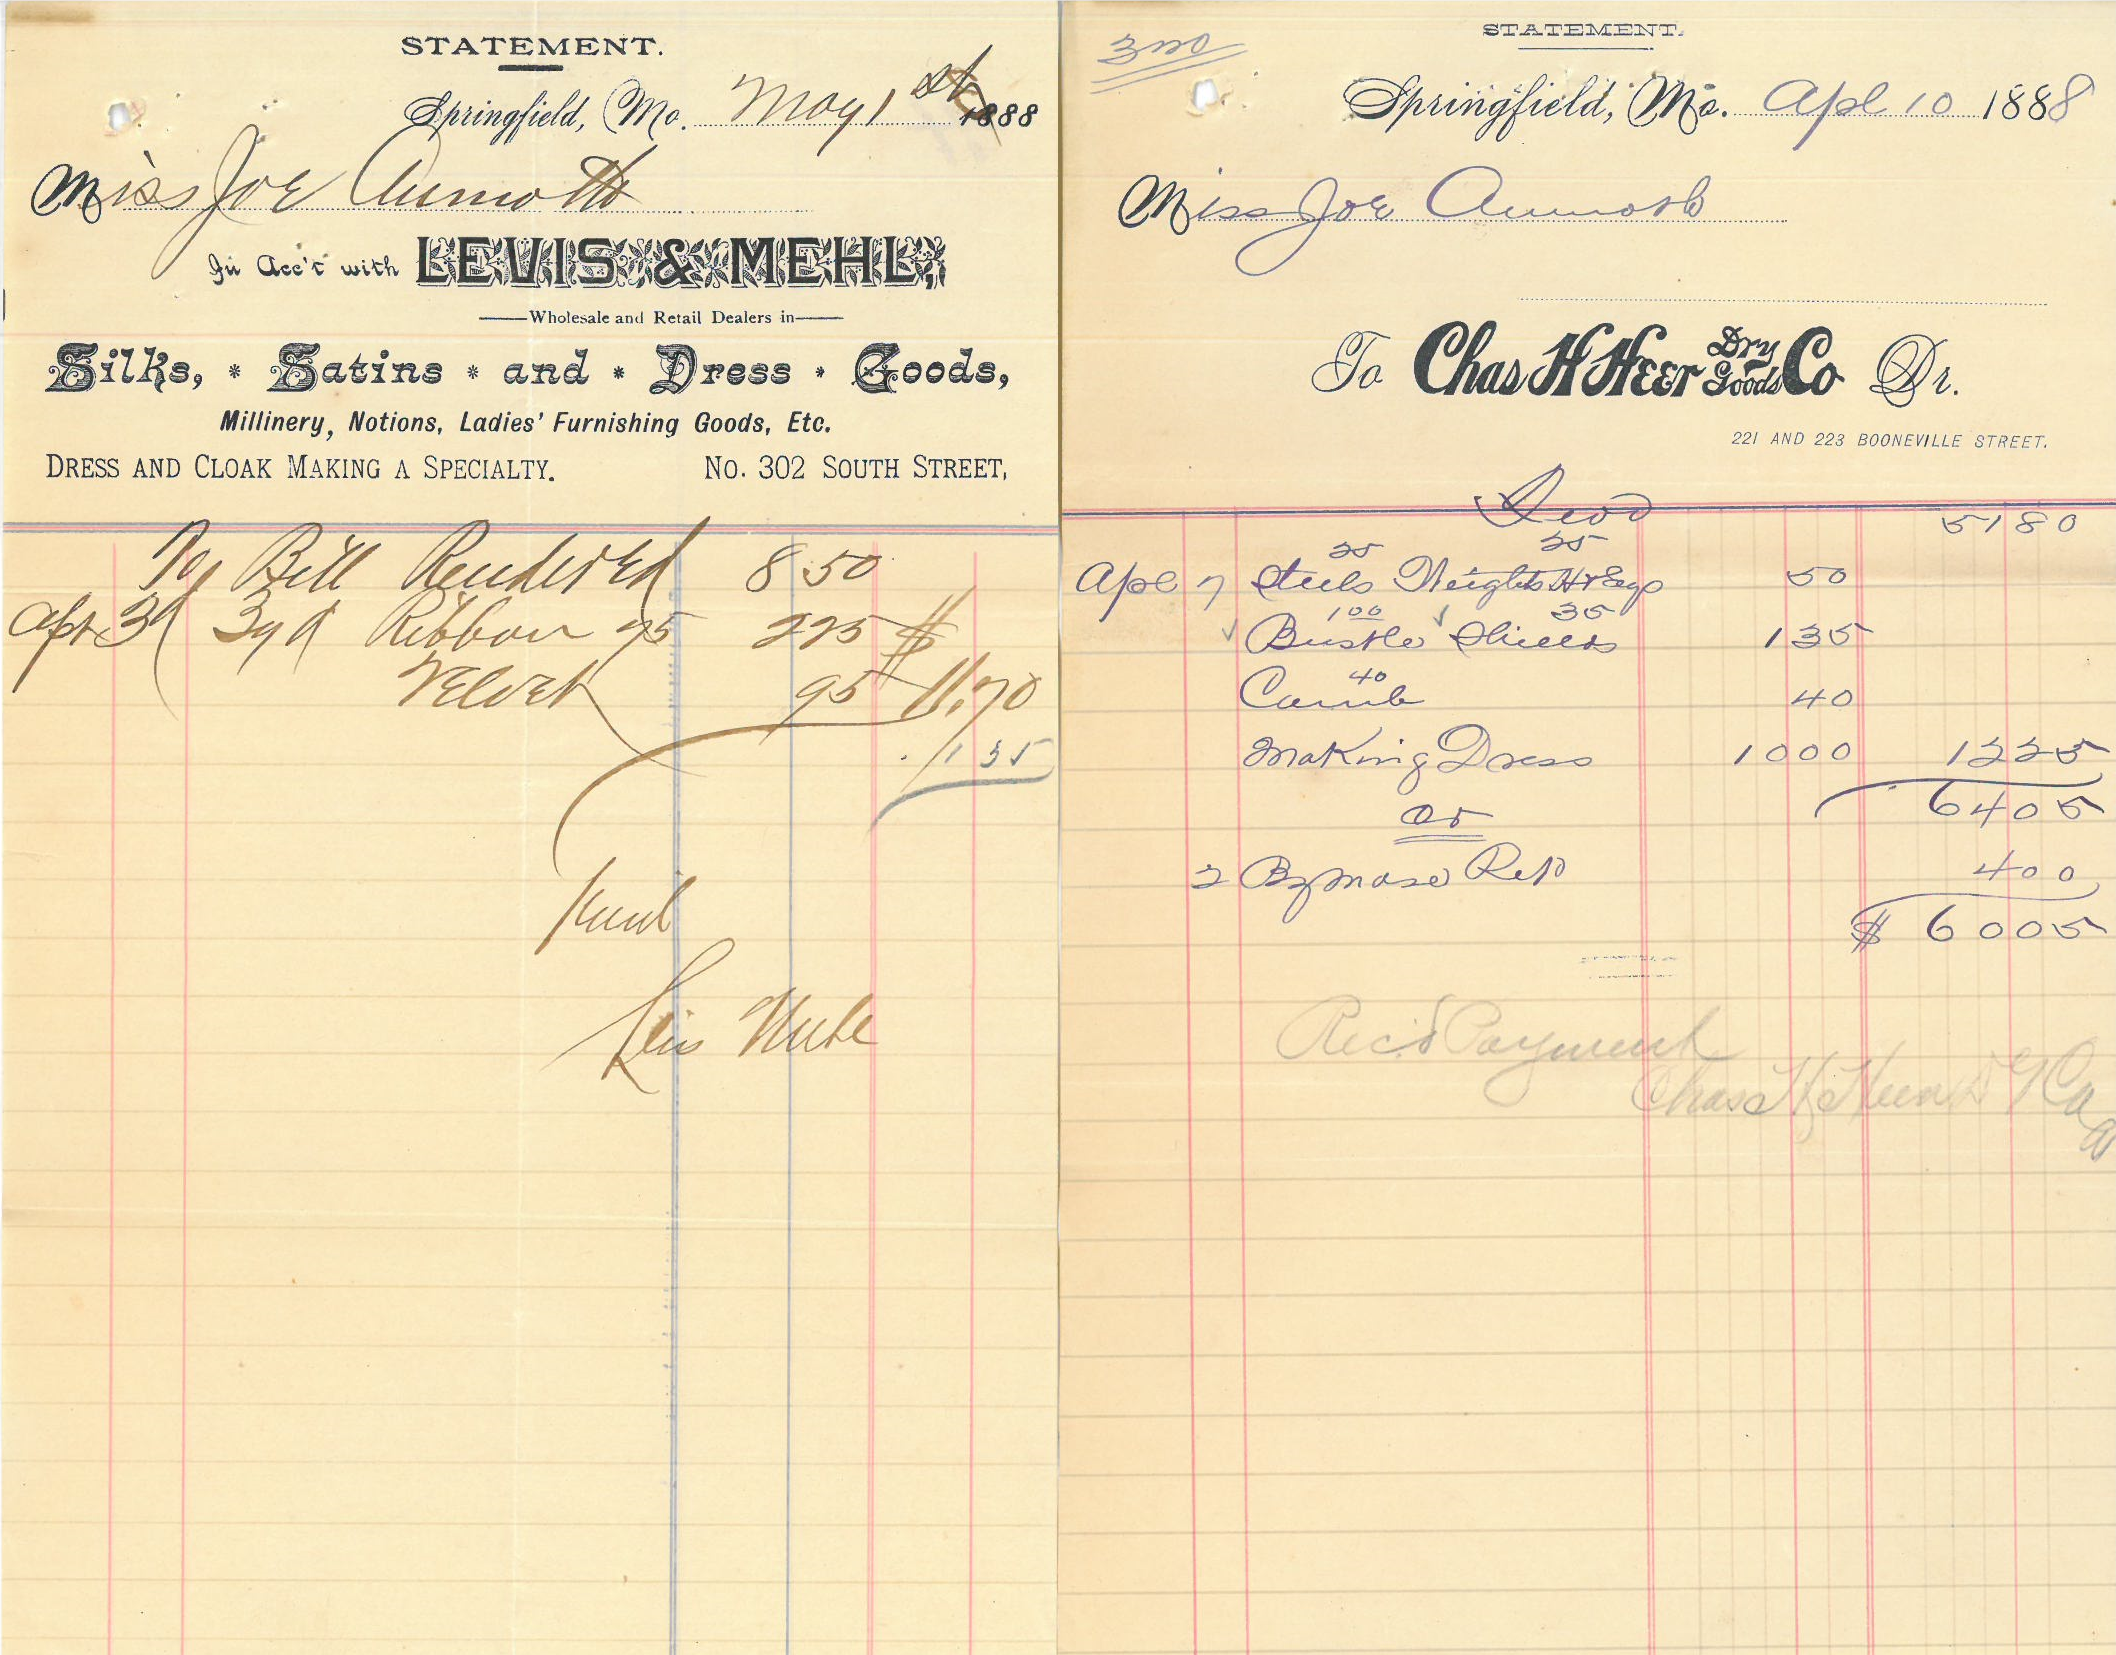 STATEMENT.
Springfield, Mo. May 1 st 1888
Miss Joe Aumoth
In Acc't with LEVIS & MEHL,
Wholesale and Retail Dealers in
Silks, * Satins * and * Dress * Goods,
Millinery, Notions, Ladies' Furnishing Goods, Etc.
DRESS AND CLOAK MAKING A SPECIALTY. No. 302 SOUTH STREET,
To Bill Rendered 8 50
Apr 3d 3yd Ribbon 75 225 $
Velvet 95 11.70
135
STATEMENT.
Springfield, Mo. Apl 10 1888
Miss Joe Aumoth
To Chas H Heer Dry Goods Co Dr.
221 AND 223 BOONEVILLE STREET.
5180
25 25
Apl 7 Steels Weights H & Eys 50
100 35
Bustle Shields 135
40
Camb 40
Making Dress 1000 1225
6405
Cr
2 By mdse Ret 400
$ 6005
Rec'd Payment
Chas H Heer D G Co